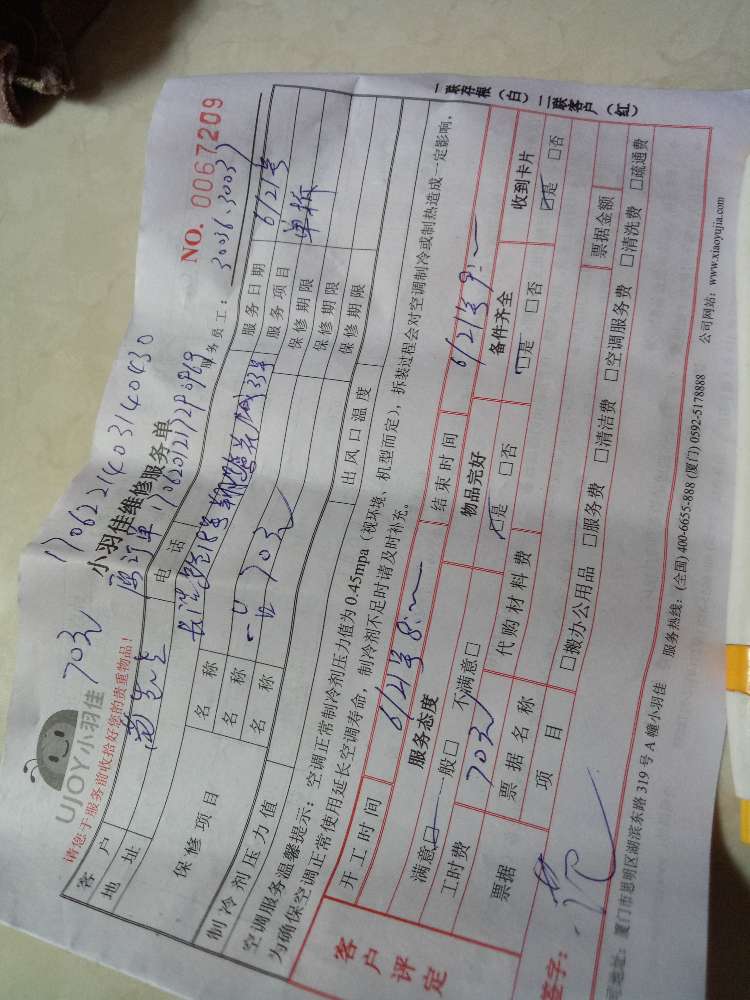 70元 170622140314040430
UJOY小羽佳
小羽佳维修服务单
NO. 0067209
请您于服务前收拾好您的贵重物品!
服务员工: 30036.30037
客户 电话 服务日期 6/21号
地址 服务项目 单拆
保修项目 名称 保修期限
名称 70元 保修期限
名称 保修期限
制冷剂压力值 出风口温度
空调服务温馨提示: 空调正常制冷剂压力值为0.45mpa(视环境、机型而定),拆装过程会对空调制冷或制热造成一定影响,
为确保空调正常使用延长空调寿命,制冷剂不足时请及时补充。
一联存根(白) 二联客户(红)
客户评定
开工时间 6/21号8:~ 结束时间 6/21号9:~
服务态度 物品完好 备件齐全 收到卡片
满意□ 一般□ 不满意□ □是 □否 □是 □否 □是 □否
工时费 70元 代购材料费
票据 票据名称 票据金额
项目 □搬办公用品 □服务费 □清洁费 □空调服务费 □清洗费 □疏通费
签字:
地址: 厦门市思明区湖滨东路319号A幢小羽佳 服务热线: (全国) 400-6655-888 (厦门) 0592-5178888 公司网站: www.xiaoyujia.com